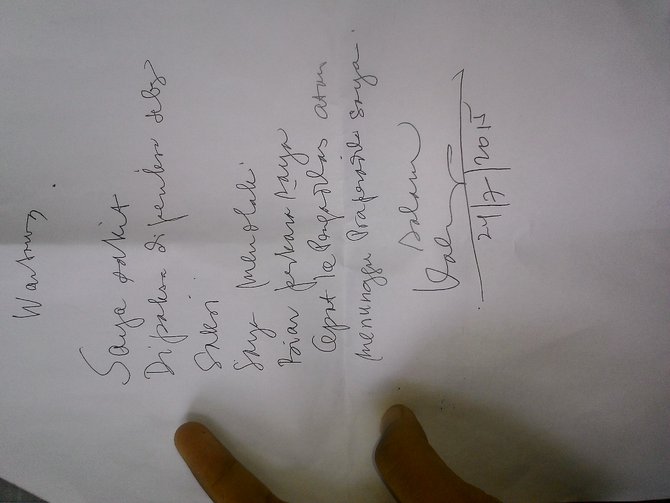 Wartawan.
Saya sakit
Dipaksa diperiksa sebg
Saksi
Saya menolak.
Biar perkara saya
Cepat ke Pengadilan atau
menunggu Praperadilan saya.
Salam
24/7/2015